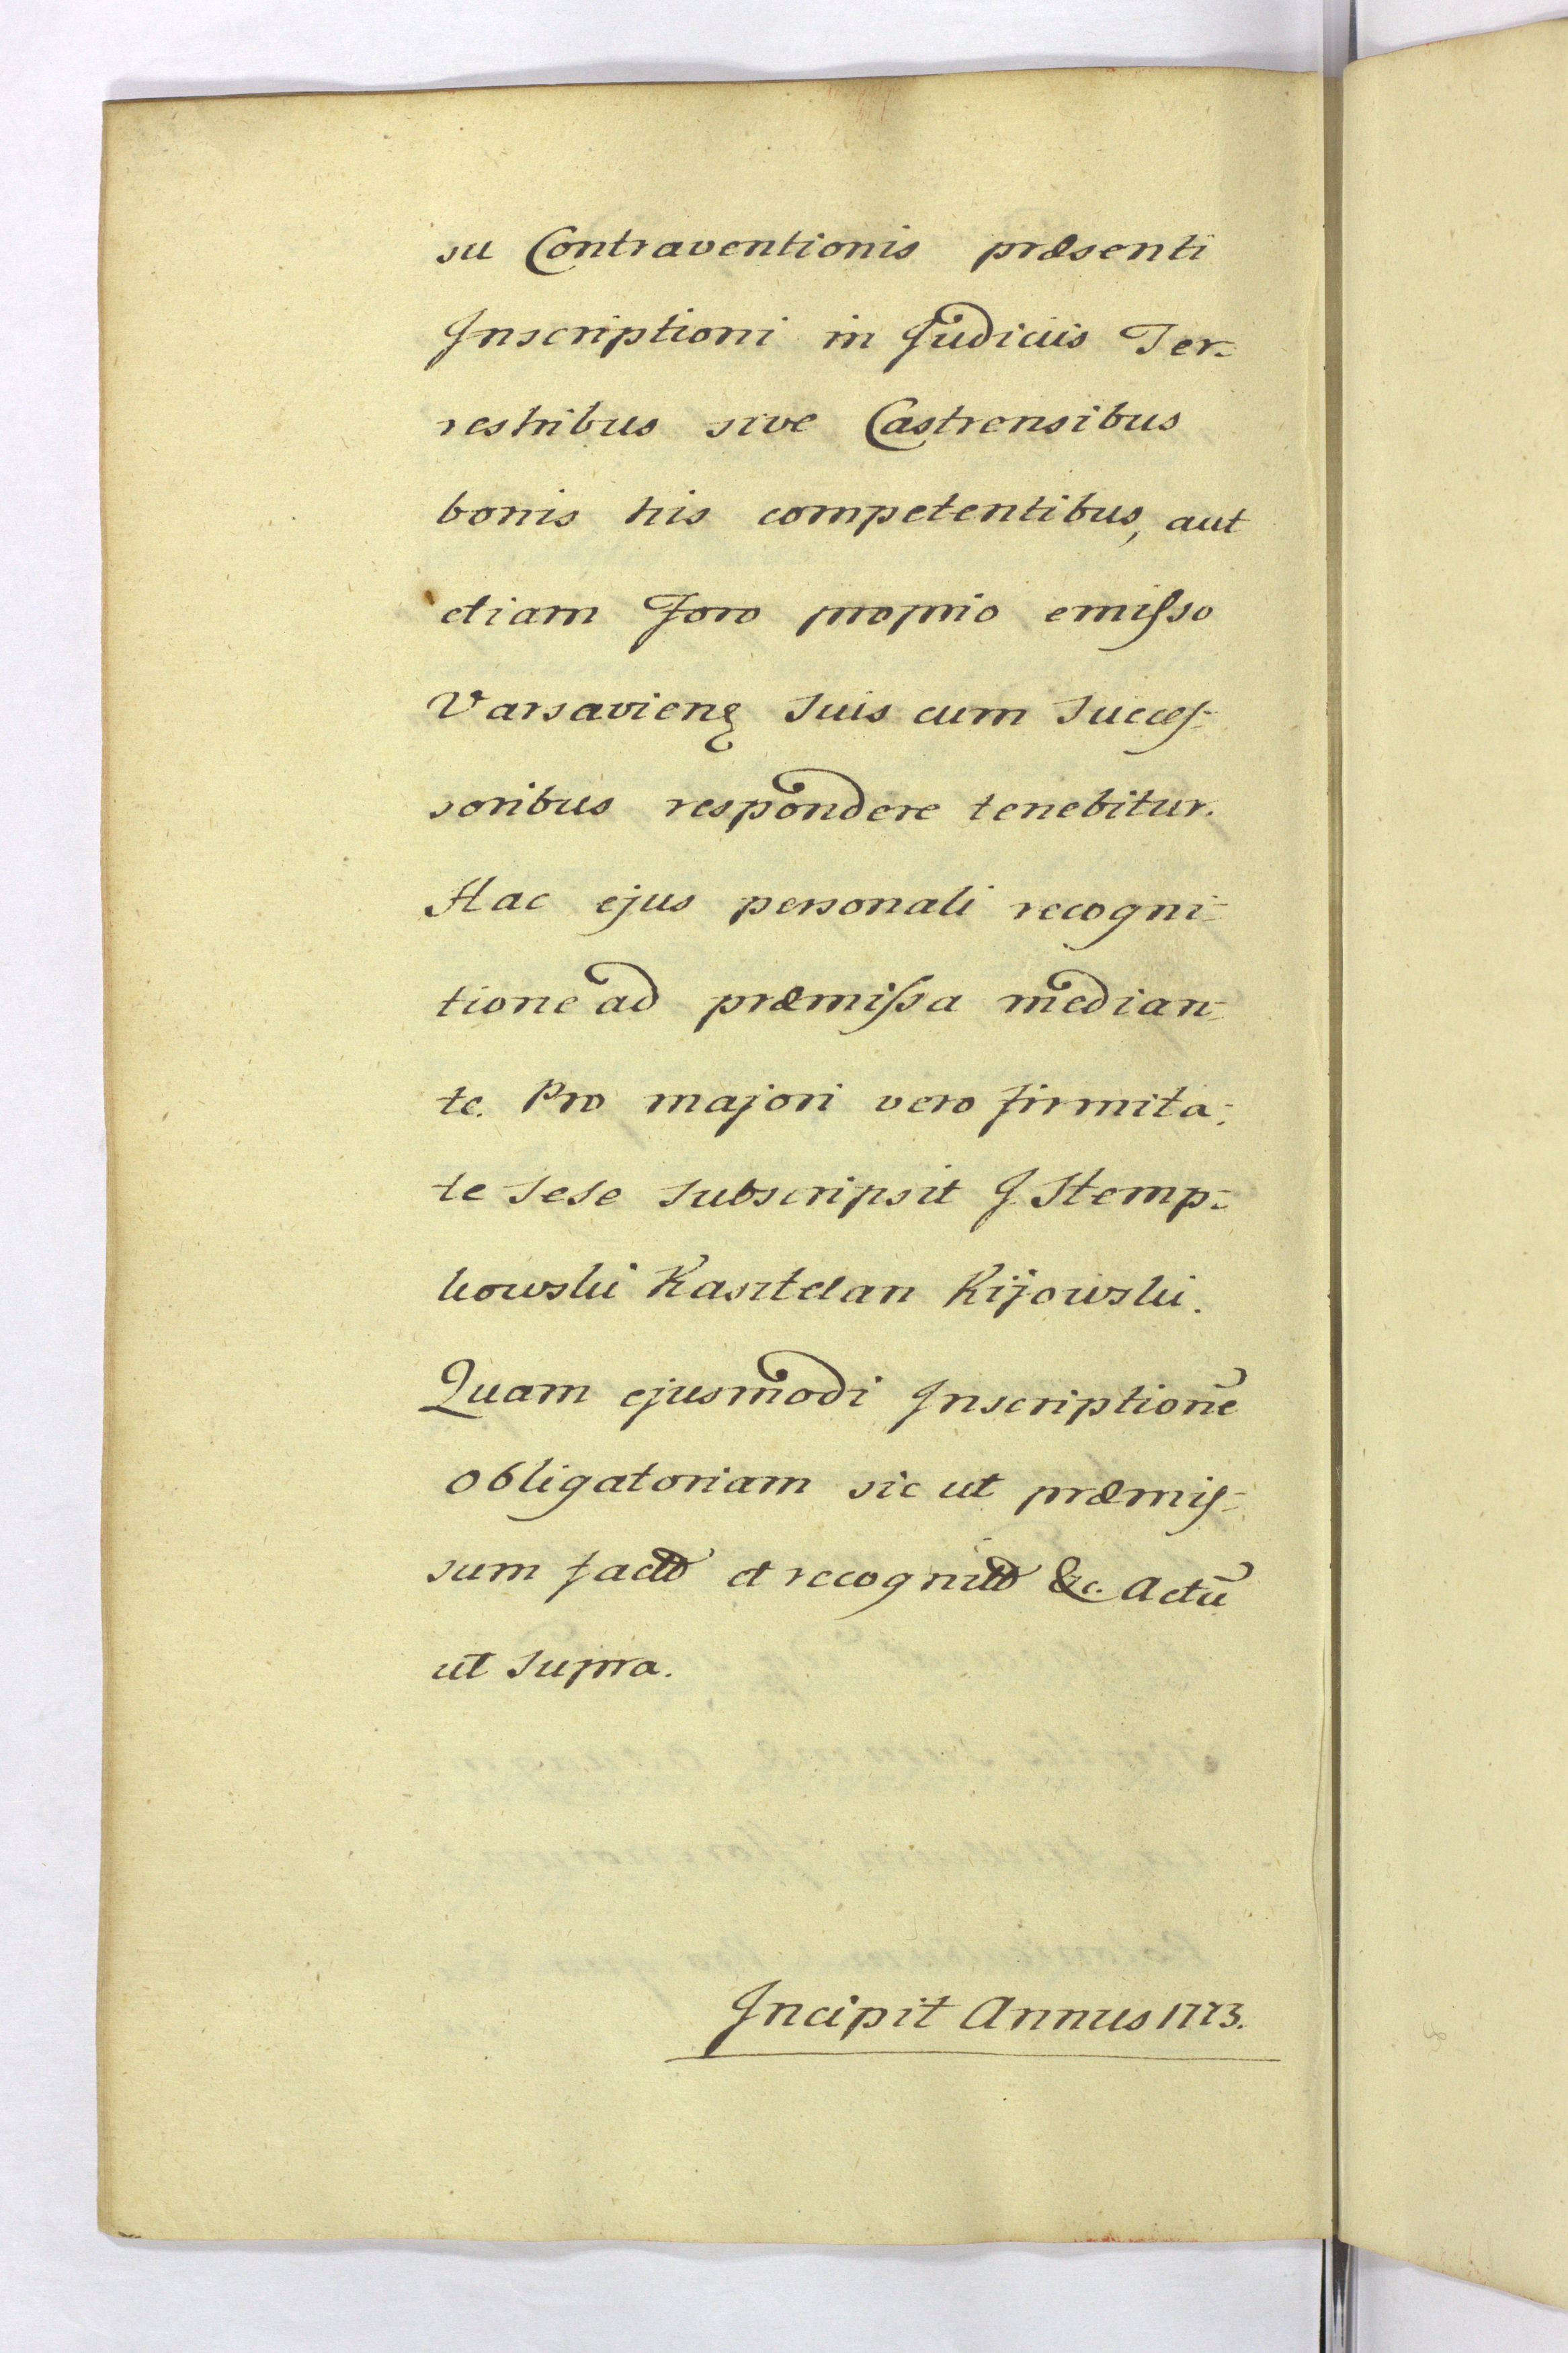 su Contraventionis præsenti
Inscriptioni in Judiciis Ter-
restribus sive Castrensibus
bonis his competentibus, aut
etiam Foro proprio emisso
Varsavien. suis cum Succes-
soribus respondere tenebitur.
Hac ejus personali recogni-
tione ad præmissa median-
te. Pro majori vero firmita-
te sese subscripsit J. Stemp-
kowski Kasztelan Kijowski.
Quam ejusmodi Inscriptionē
obligatoriam sic ut præmis-
sum et &c. Actū
ut supra.
Incipit Annus 1773.